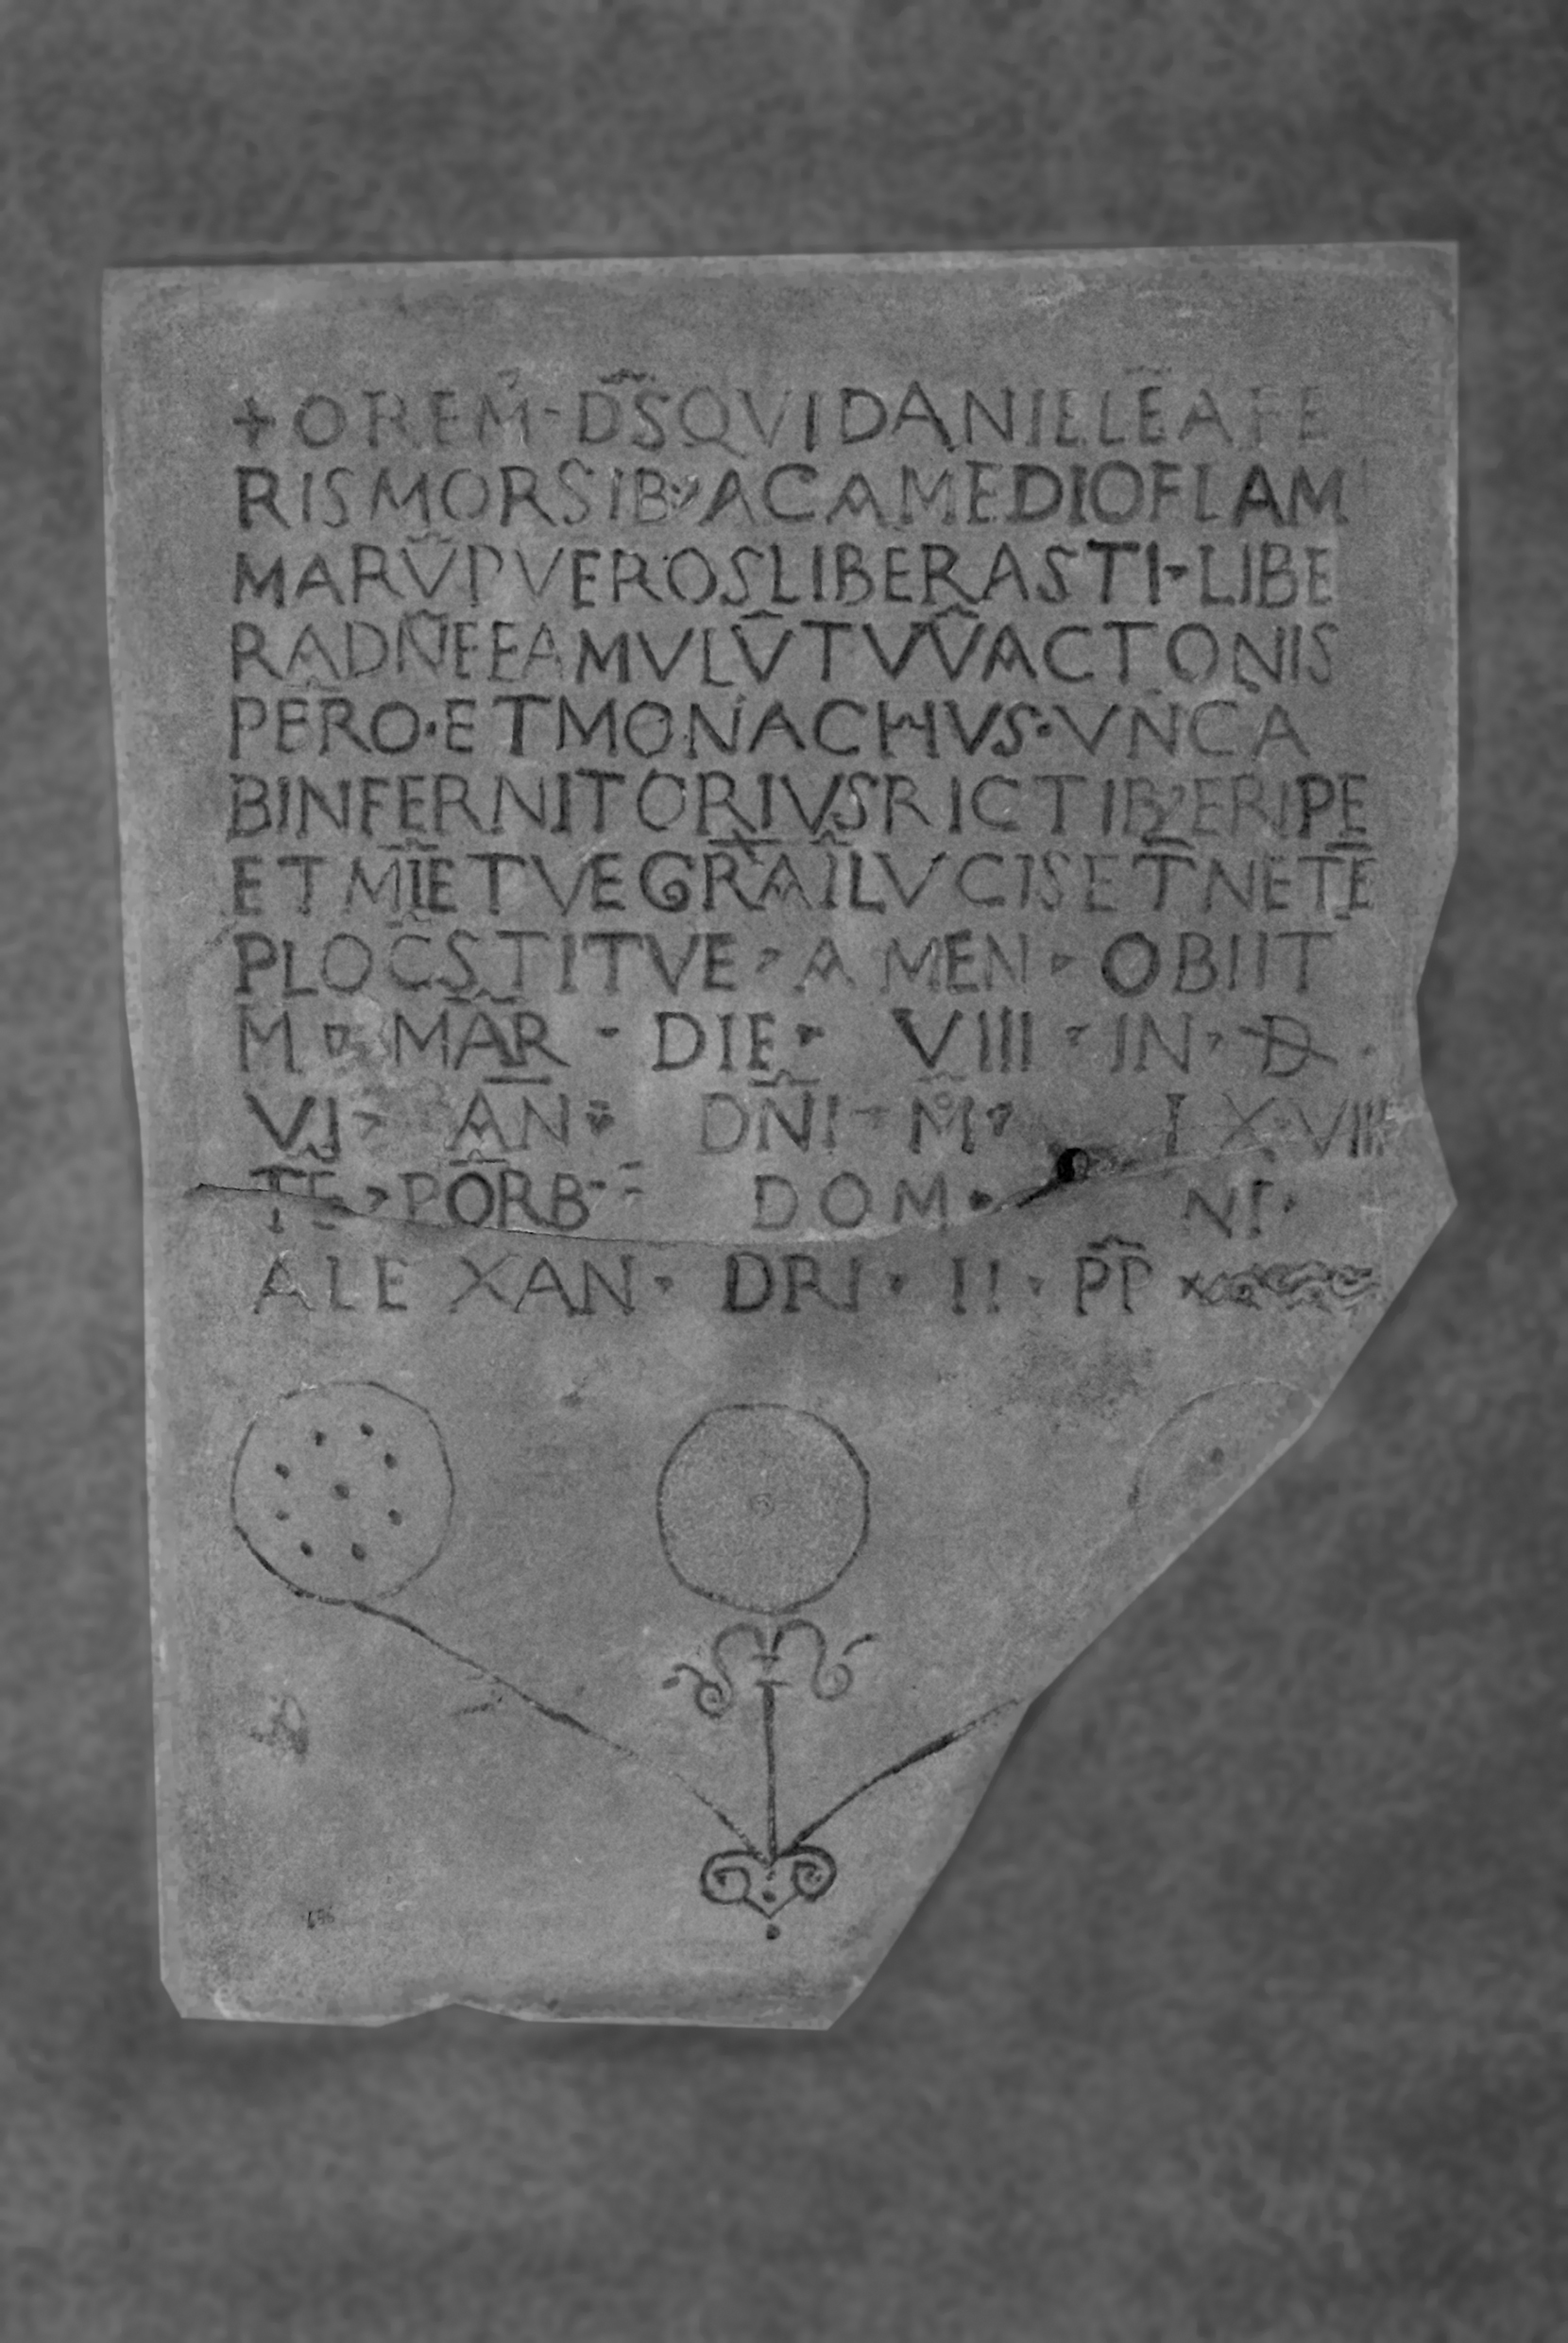 + OREM̄ · D̄S QVI DANIELĒ A FE
RIS MORSIB; AC A MEDIO FLAM
MARV̄ PVEROS LIBERASTI · LIBE
RA DN̄E EAMVLV̄ TVV̄ ACTONIS
PĒRO · ET MONACHVS · VN̄C A
B INFERNITORIVS RICTIB; ERIPE
ET MĪE TVE GR̄A Ī LVCIS ET̄NE TĒ
PLO C̄STITVE · AMEN · OBIIT
M · MĀR · DIE · VIII · IN · D ·
VI · ĀN · DN̄I · M̊ · IX · VIII
TĒ · PŌRB · DOM · NI ·
ALE XAN · DRI · II · P̄P̄